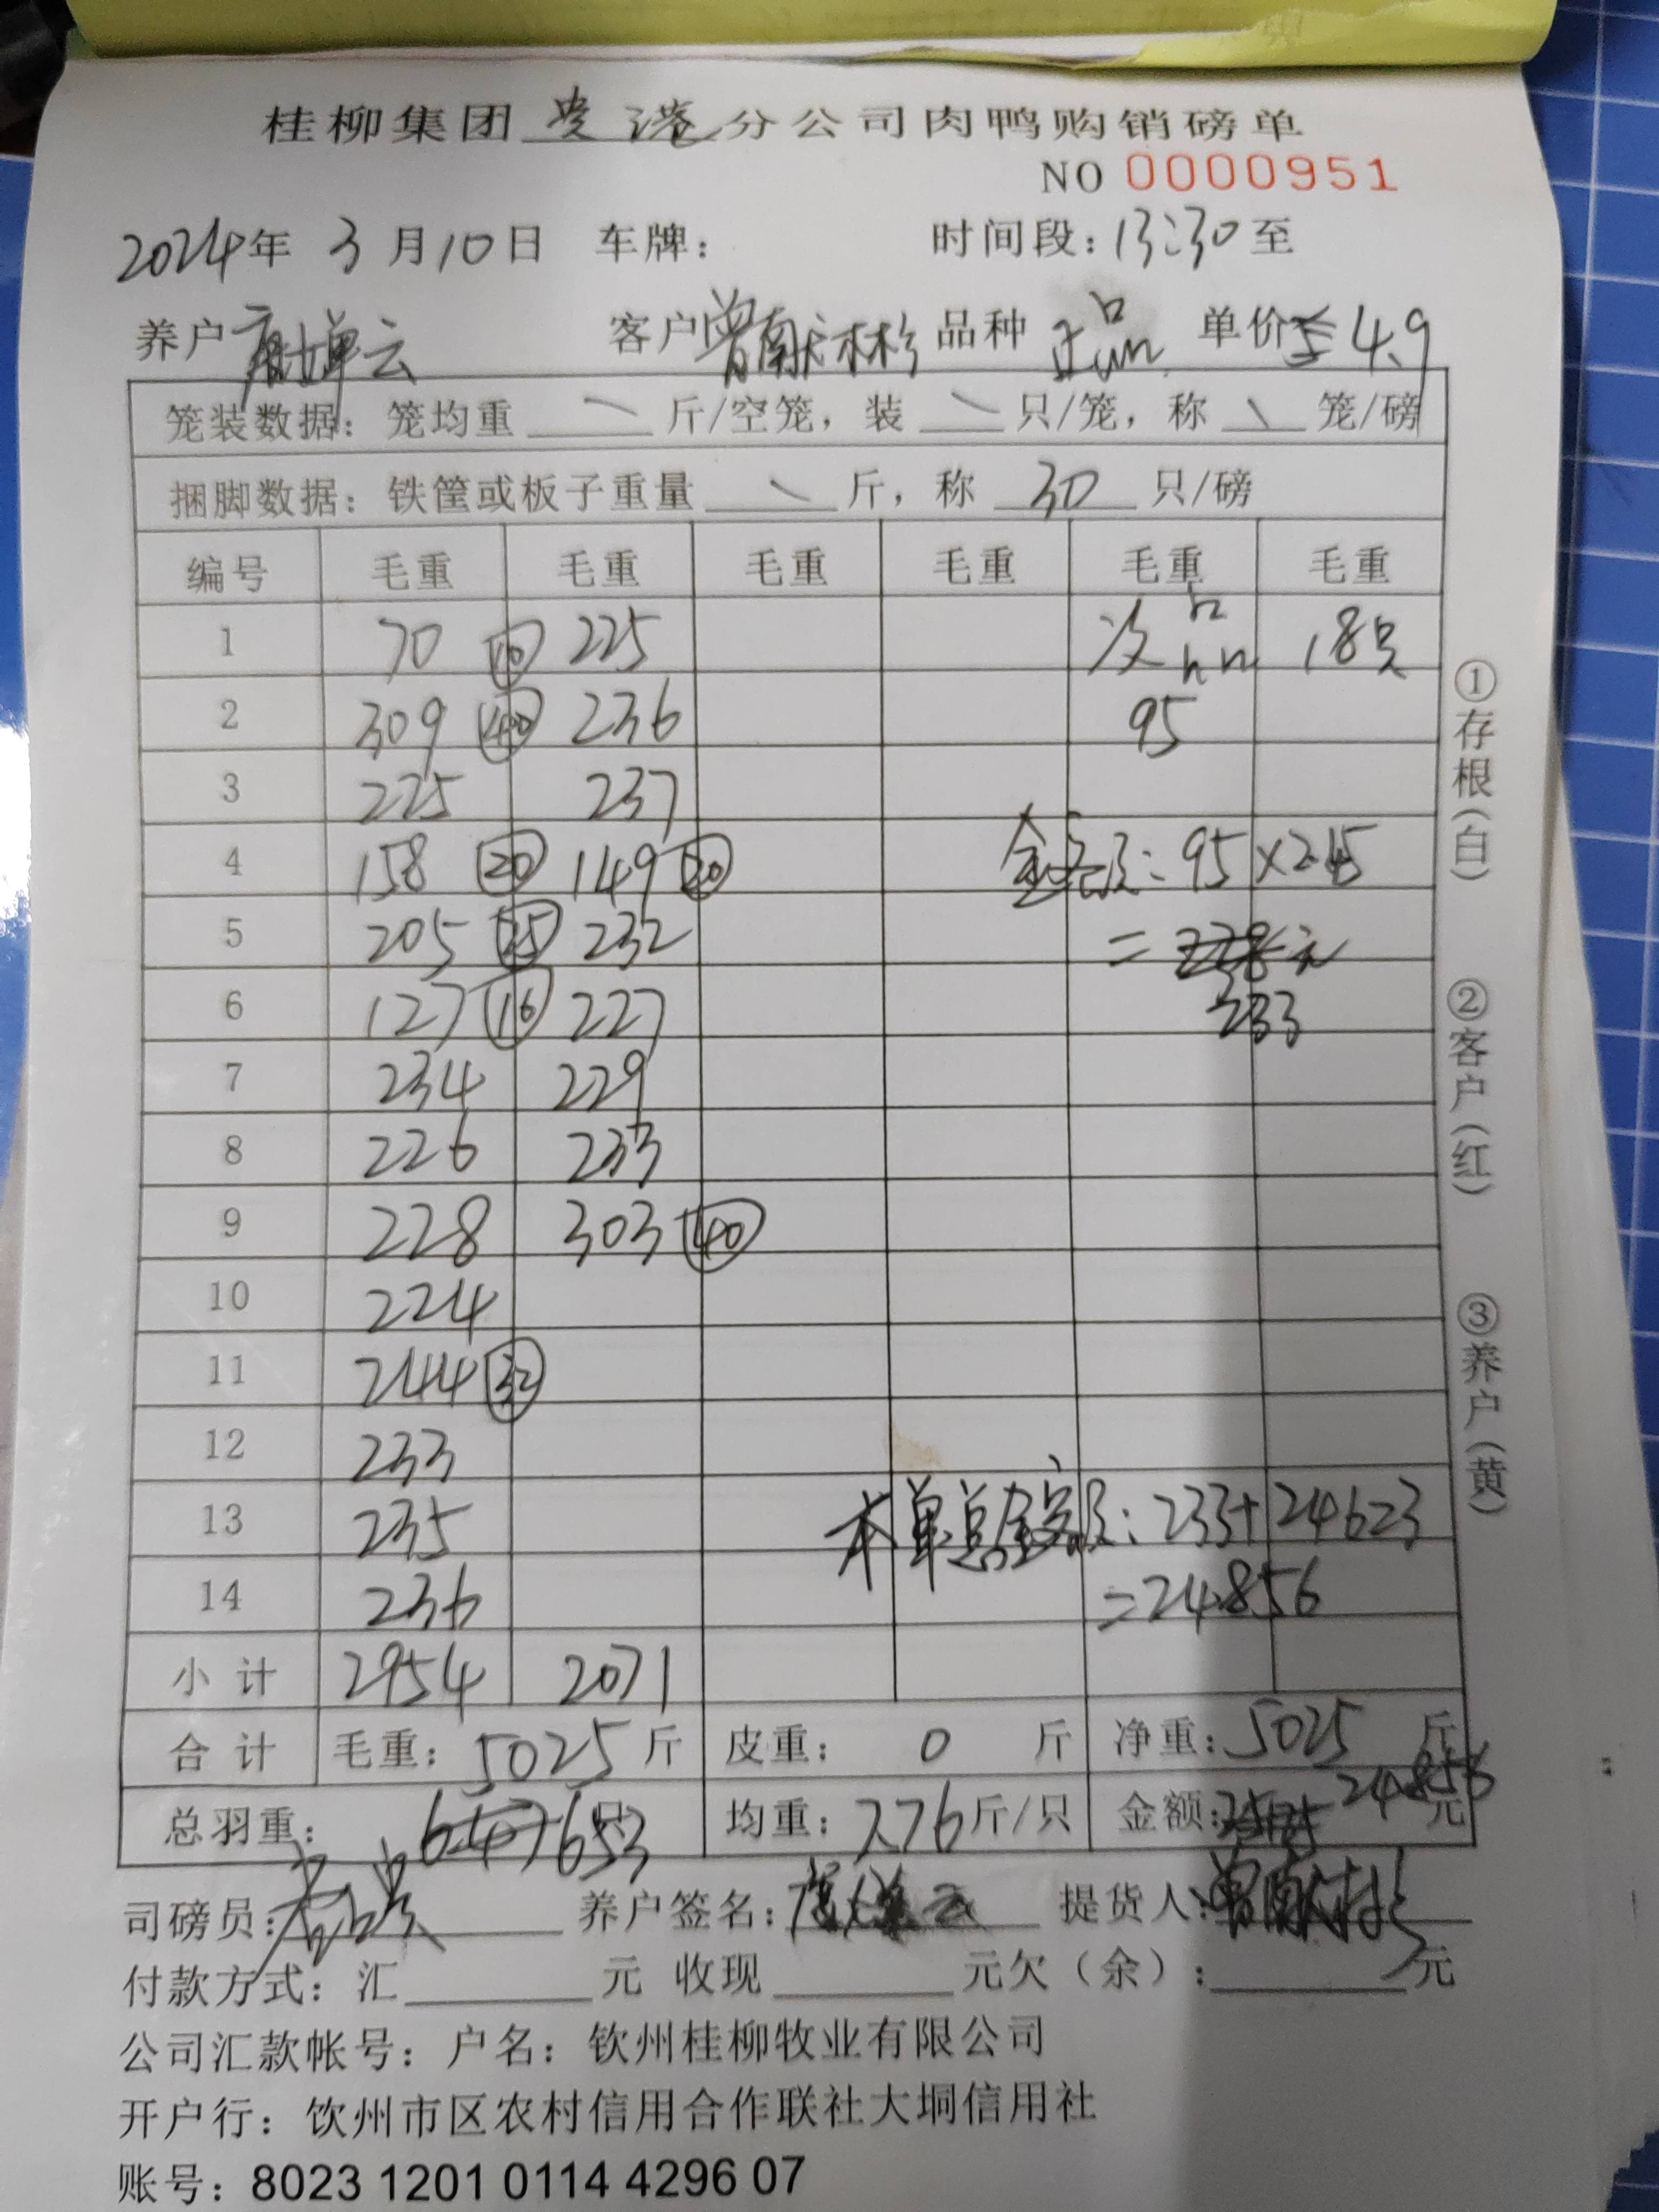 桂柳集团贵港分公司肉鸭购销磅单
NO 0000951
2024年 3月10日 车牌： 时间段：13:30至
养户 云 客户 曾献林 品种 正品 单价 4.9
笼装数据：笼均重 \ 斤/空笼，装 \ 只/笼，称 \ 笼/磅
捆脚数据：铁筐或板子重量 \ 斤，称 30 只/磅
编号 毛重 毛重 毛重 毛重 毛重 毛重
1 70 10 225 次品 18只
2 309 40 236 95
3 225 237
4 158 20 149 20 金额：95×2.45
5 205 25 232 = 元
6 127 16 227 233
7 234 229
8 226 233
9 228 303 40
10 224
11 244 32
12 233
13 235 本单总金额：233+24623
14 236 =24856
小计 2954 2071
合计 毛重：5025斤 皮重：0斤 净重：5025斤
总羽重：647 653 均重：7.76斤/只 金额：24856元
司磅员： 养户签名： 云 提货人：曾献
付款方式：汇 元 收现 元欠（余）： 元
公司汇款帐号：户名：钦州桂柳牧业有限公司
开户行：饮州市区农村信用合作联社大垌信用社
账号：8023 1201 0114 4296 07
①存根(白) ②客户(红) ③养户(黄)